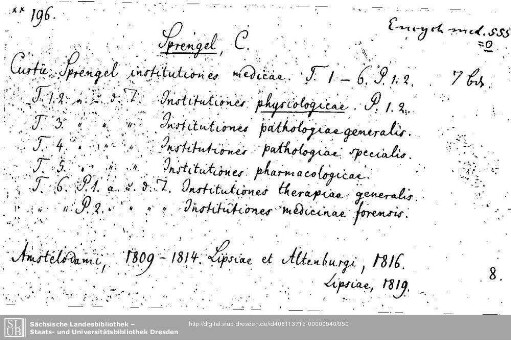 ** 196.
Encycl. med. 555
=0
Sprengel, C.
Curtii Sprengel institutiones medicae. T. 1 – 6. P. 1. 2. 7 bde.
T. 1. 2. u. d. T. Institutiones physiologicae. P. 1. 2.
T. 3. " " " Institutiones pathologiae generalis.
T. 4. " " " Institutiones pathologiae specialis.
T. 5. " " " Institutiones pharmacologicae.
T. 6. P. 1. a. u. d. T. Institutiones therapiae generalis.
" " P. 2. " " Institutiones medicinae forensis.
Amstelodami, 1809 – 1814. Lipsiae et Altenburgi, 1816.
Lipsiae, 1819.
8.
Sächsische Landesbibliothek –
Staats- und Universitätsbibliothek Dresden